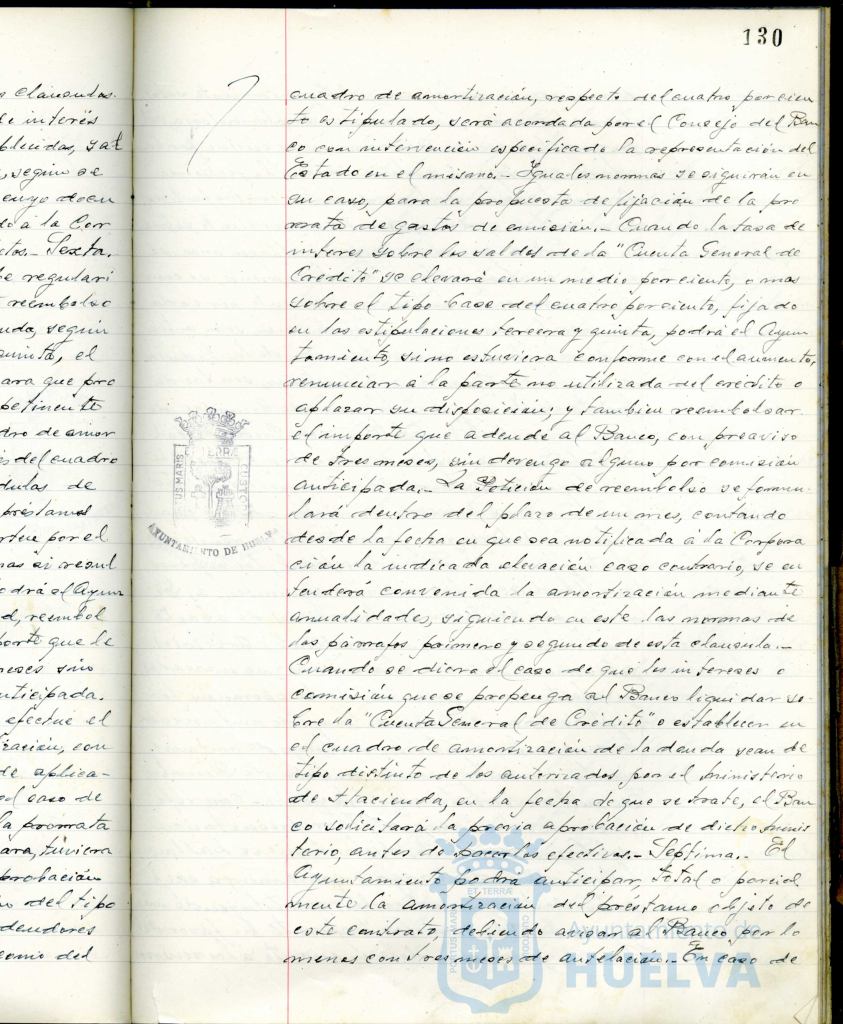 s clausulas.
de interés
blecidas, sal
, segun se
cuyo docu
do á la Cor
tos.- Sexta.
be regulari
reembolso
uda, segun
quinta, el
ara que pro
petinente
dro de amor
es del cuadro
dulas de
prestamos
por el
mas si resul
odrá el Ayun
d, reembol
porte que le
meses sin
nticipada.
efectue el
ización, con
de aplica-
el caso de
la prorrata
ara, tuviera
probación
o del tipo
dendores
como del
130
cuadro de amortización, respecto del cuatro por cien
to estipulado, será acordada por el Consejo del Ban
co con intervención especificado la representación del
Estado en el mismo.- Iguales normas se siguirán en
su caso, para la propuesta de fijación de la pro
rrata de gastos de emisión.- Cuando la tasa de
interes sobre los saldos de la "Cuenta General de
Crédito" se elevará en un medio por ciento, o mas
sobre el tipo base del cuatro por ciento, fijado
en las estipulaciones tercera y quinta, podrá el Ayun
tamiento, si no estuviera conforme con el aumento,
renunciar á la parte no utilizada del crédito o
aplazar su disposición; y tambien reembolsar
el importe que adende al Banco, con preaviso
de tres meses, sin devengo alguno por comisión
anticipada.- La Petición de reembolso se formu
lará dentro del plazo de un mes, contando
desde la fecha en que sea notificada á la Corpora
ción la indicada elevación caso contrario, se en
tenderá convenida la amortización mediante
anualidades, siguiendo en este las normas de
los párrafos primero y segundo de esta clausula.-
Cuando se diera el caso de que los intereses o
comisión que se proponga al Banco liquidar so-
bre la "Cuenta General de Crédito" o establecer en
el cuadro de amortización de la deuda sean de
tipo distinto de los autorizados, por el Ministerio
de Hacienda, en la fecha de que se trate, el Ban
co solicitará la previa aprobación de dicho Minis
terio, antes de hacerlos efectivos.- Septima.- El
Ayuntamiento podra anticipar, total o parcial
mente la amortización del préstamo objeto de
este contrato, debiendo avisar al Banco, por lo
menos con tres meses de antelación.- En caso de
PORTUS MARIS ET TERRAE CUSTODIA
AYUNTAMIENTO DE HUELVA
PORTUS MARIS ET TERRA CUSTOD
Ayuntamiento de
HUELVA